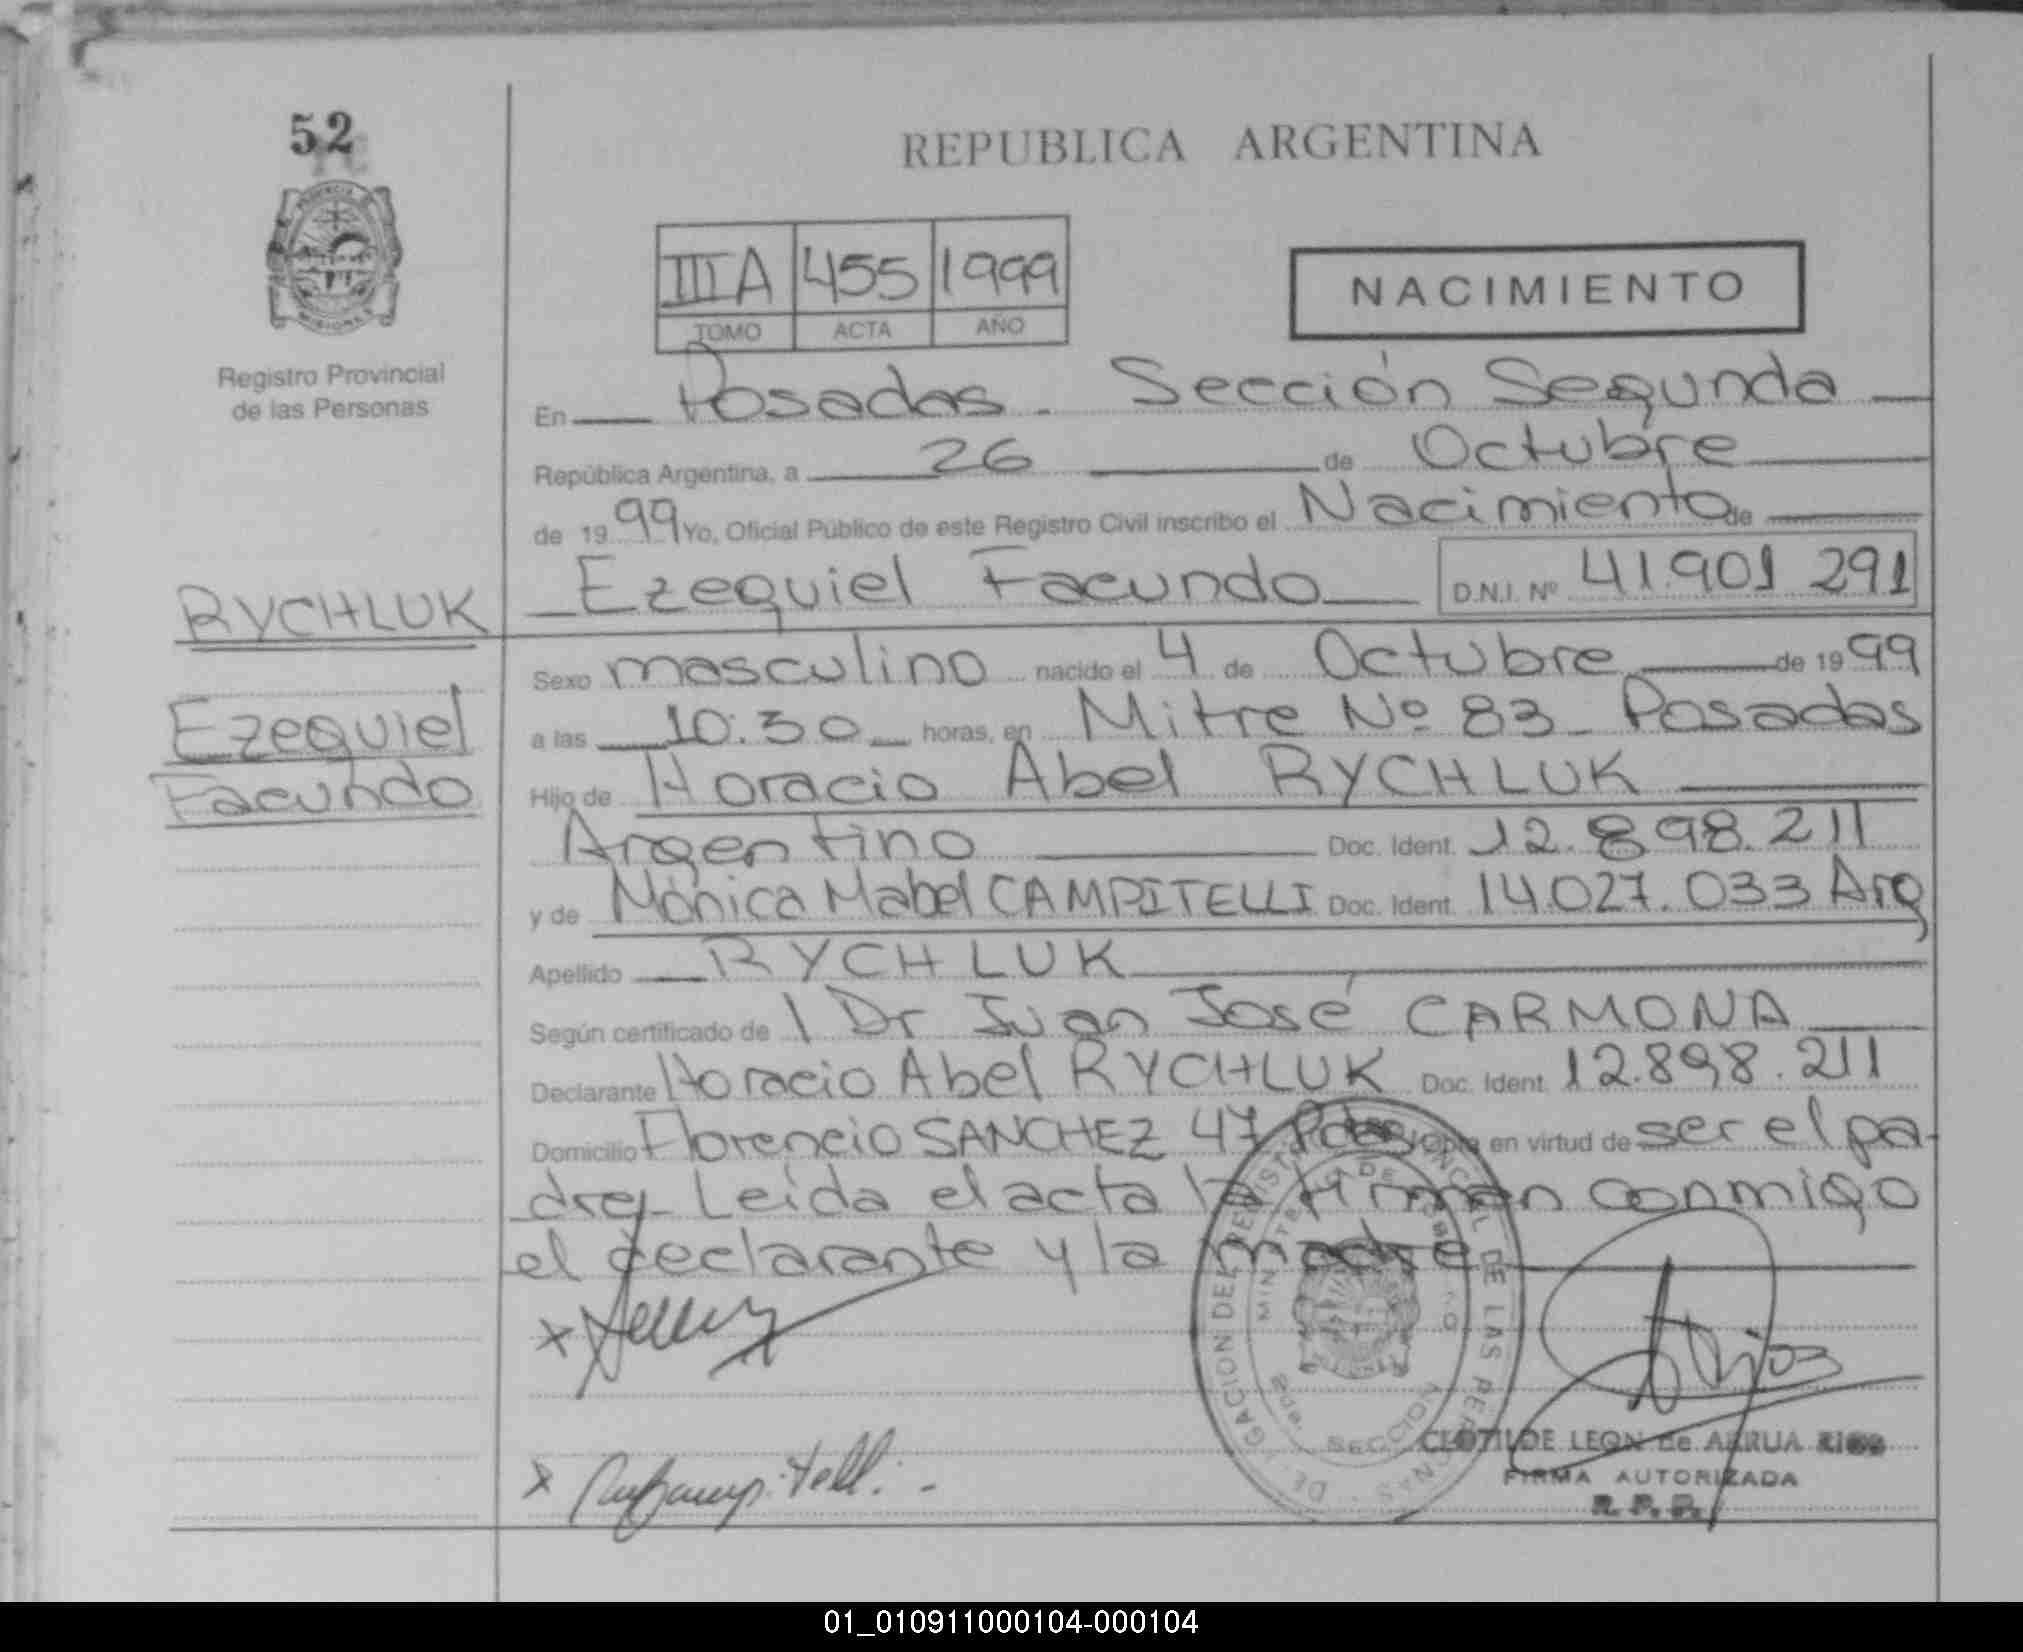 52
REPUBLICA ARGENTINA
III A 455 1999
TOMO ACTA AÑO
NACIMIENTO
Registro Provincial
de las Personas
En Posadas. Sección Segunda
República Argentina, a 26 de Octubre
de 1999 Yo, Oficial Público de este Registro Civil inscribo el Nacimiento de
Ezequiel Facundo D.N.I. Nº 41.901 291
RYCHLUK
Ezequiel
Facundo
Sexo masculino nacido el 4 de Octubre de 1999
a las 10:30 horas, en Mitre Nº 83 - Posadas
Hijo de Horacio Abel RYCHLUK
Argentino Doc. Ident. 12.898.211
y de Mónica Mabel CAMPITELLI Doc. Ident. 14.027.033 Arg
Apellido RYCHLUK
Según certificado de l Dr Juan José CARMONA
Declarante Horacio Abel RYCHLUK Doc. Ident. 12.898.211
Domicilio Florencio SANCHEZ 47 Pdas Obra en virtud de ser el pa-
dre- Leída el acta la firman conmigo
el declarante y la madre
DELEGACION DEL REGISTRO CIVIL DE LAS PERSONAS
MINISTERIO DE GOBIERNO
CLOTILDE LEON de ARRUA RIOS
FIRMA AUTORIZADA
R. P. P.
01_010911000104-000104